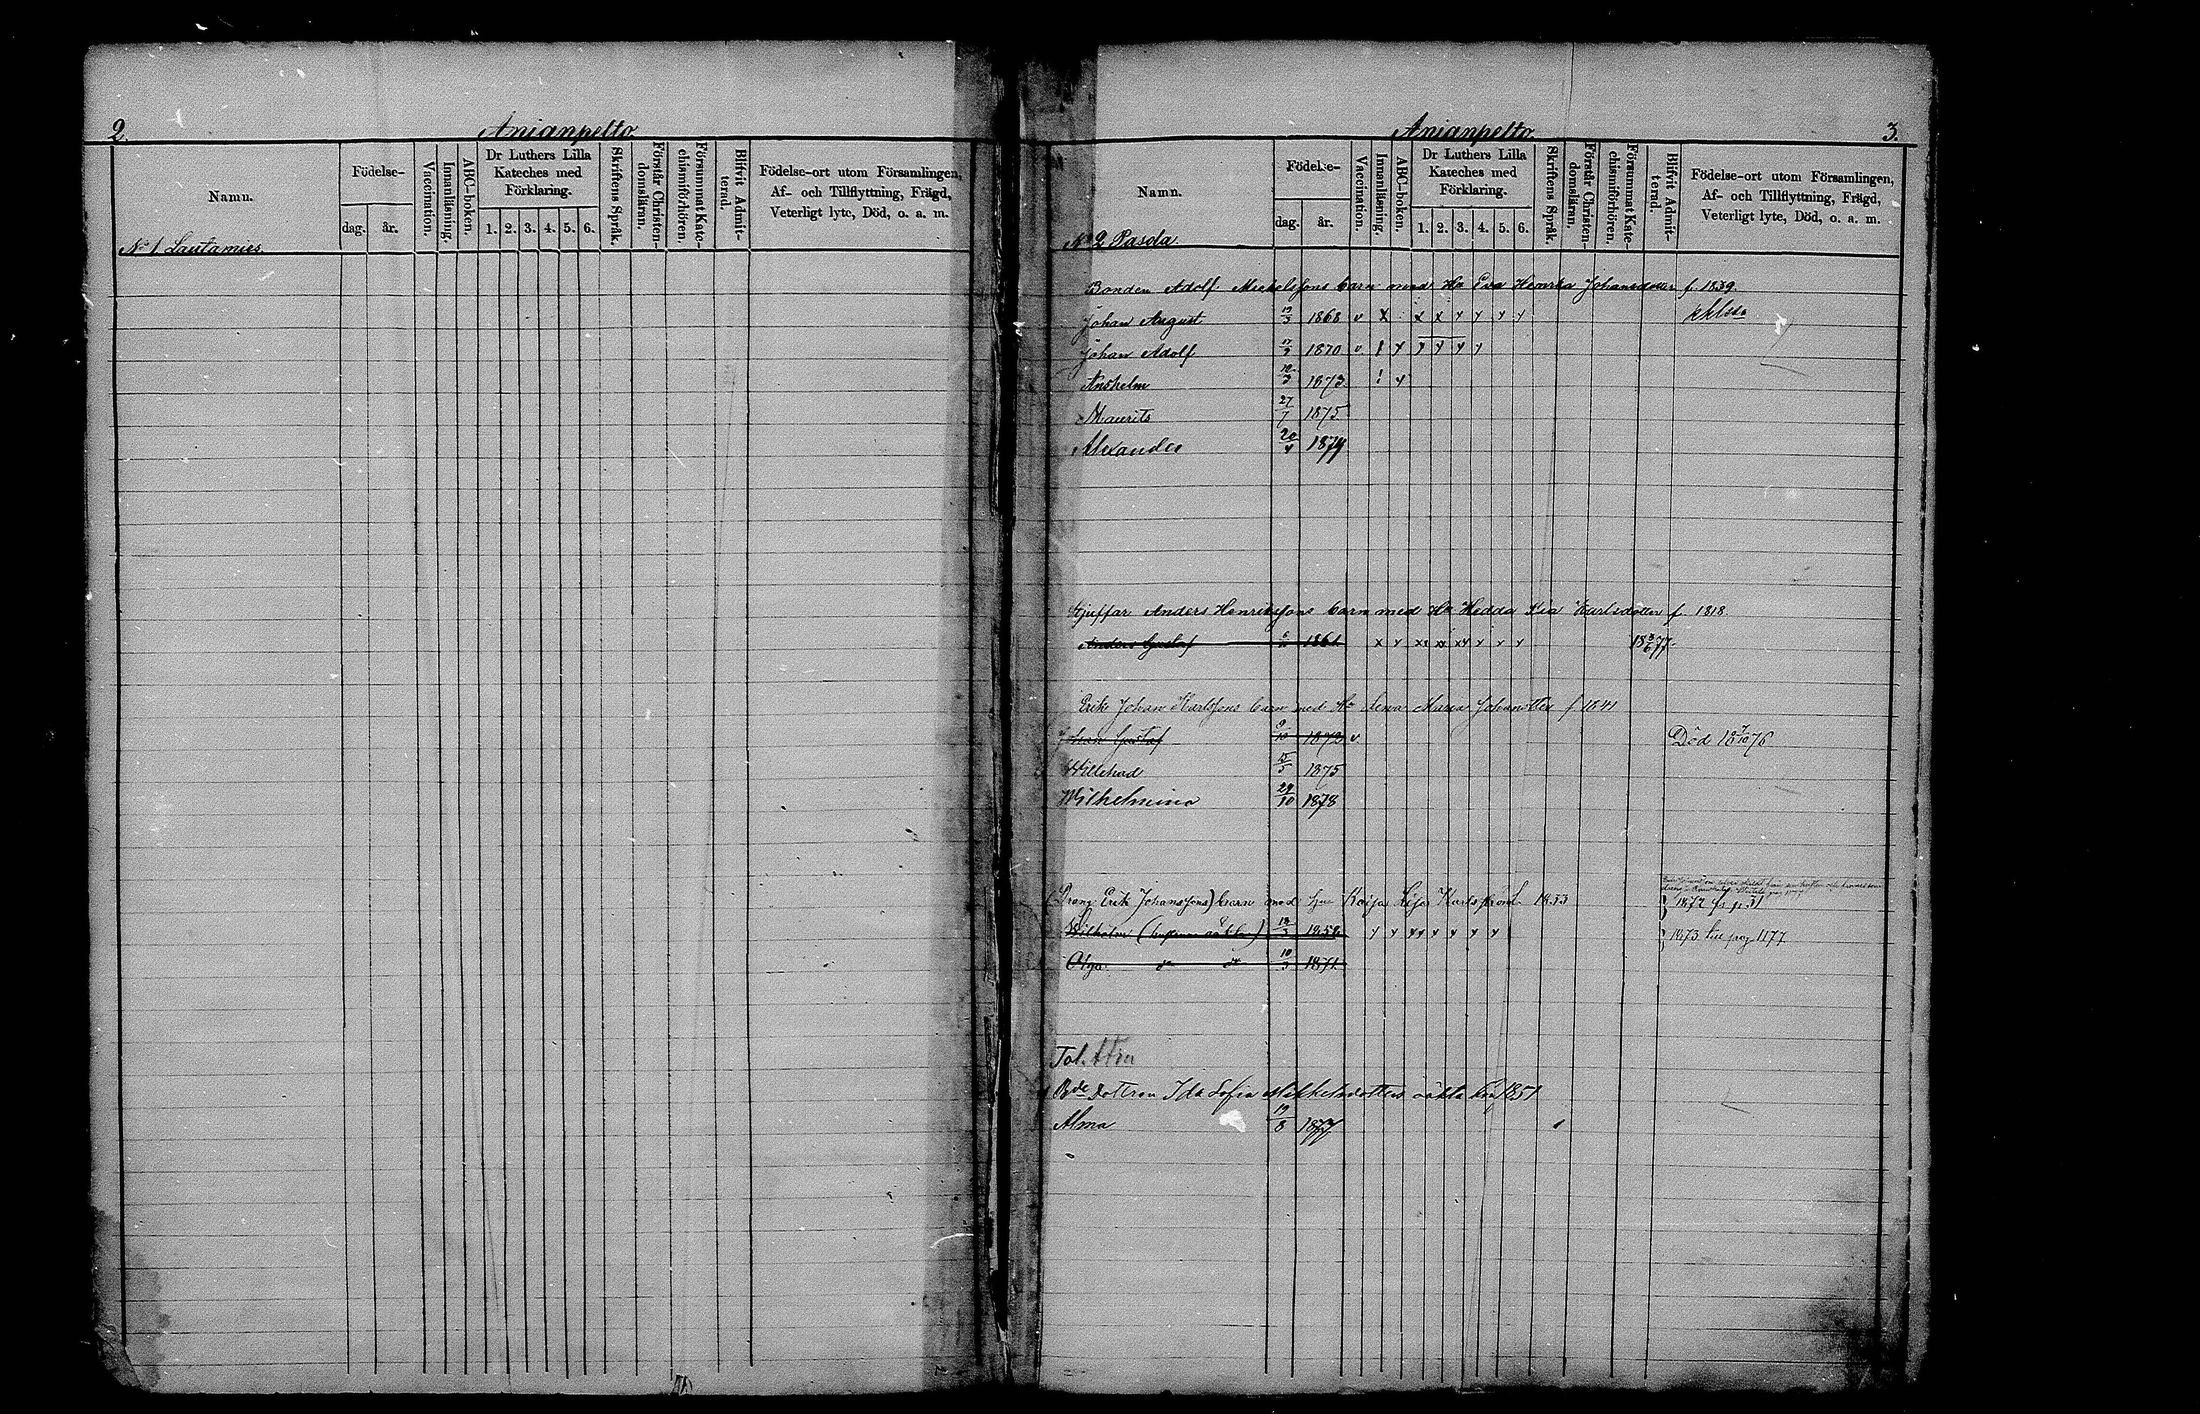 2.
Anianpelto
Namn.
Födelse-
dag.
år.
Vaccination.
Innanläsning.
ABC-boken.
Dr Luthers Lilla
Kateches med
Förklaring.
1. 2. 3. 4. 5. 6.
Skriftens Språk.
Förstår Christen-
domsläran.
Försummat Kate-
chismiförhören.
Blifvit Admit-
terad.
Födelse-ort utom Församlingen,
Af- och Tillflyttning, Frägd,
Veterligt lyte, Död, o. a. m.
No 1 Lautamies.
Anianpelto
3.
Namn.
Födelse-
dag.
år.
Vaccination.
Innanläsning.
ABC-boken.
Dr Luthers Lilla
Kateches med
Förklaring.
1. 2. 3. 4. 5. 6.
Skriftens Språk.
Förstår Christen-
domsläran.
Försummat Kate-
chismiförhören.
Blifvit Admit-
terad.
Födelse-ort utom Församlingen,
Af- och Tillflyttning, Frägd,
Veterligt lyte, Död, o. a. m.
No 2 Pasola.
Bonden Adolf Mickelssons barn med Hu Eva Henrika Johansdotter f. 1839.
Johan August 1868 v x x x y y y y
Johan Adolf 1870 v y y y y y
Anshelm 1873 y
Maurits 27/7 1875
Alexander 20/4 1879
Anders Henrikssons barn med Hu Hedda Karlsdotter f. 1818.
Anders Gustaf 1861 x y xx xx xy y y y 18 77.
Erik Johan Karlssons barn med Hu Lena Maria f 1841
Johan Gustaf 9/10 1872 v. Död 18 7/10 76
Willehad 15/5 1875
Wilhelmina 29/10 1878
(Dräng Erik Johanssons) barn med Kaija Lisa 1833
1872 fr p. 31
Wilhelm 18/3 1858 y y yy y y y y 1873 till pag 1177
Olga do do 10/3 1871
Tol.
Bde Dottren Ida Sofia Mikkelsdotters oäkta 1851
Alma 19/8 1877